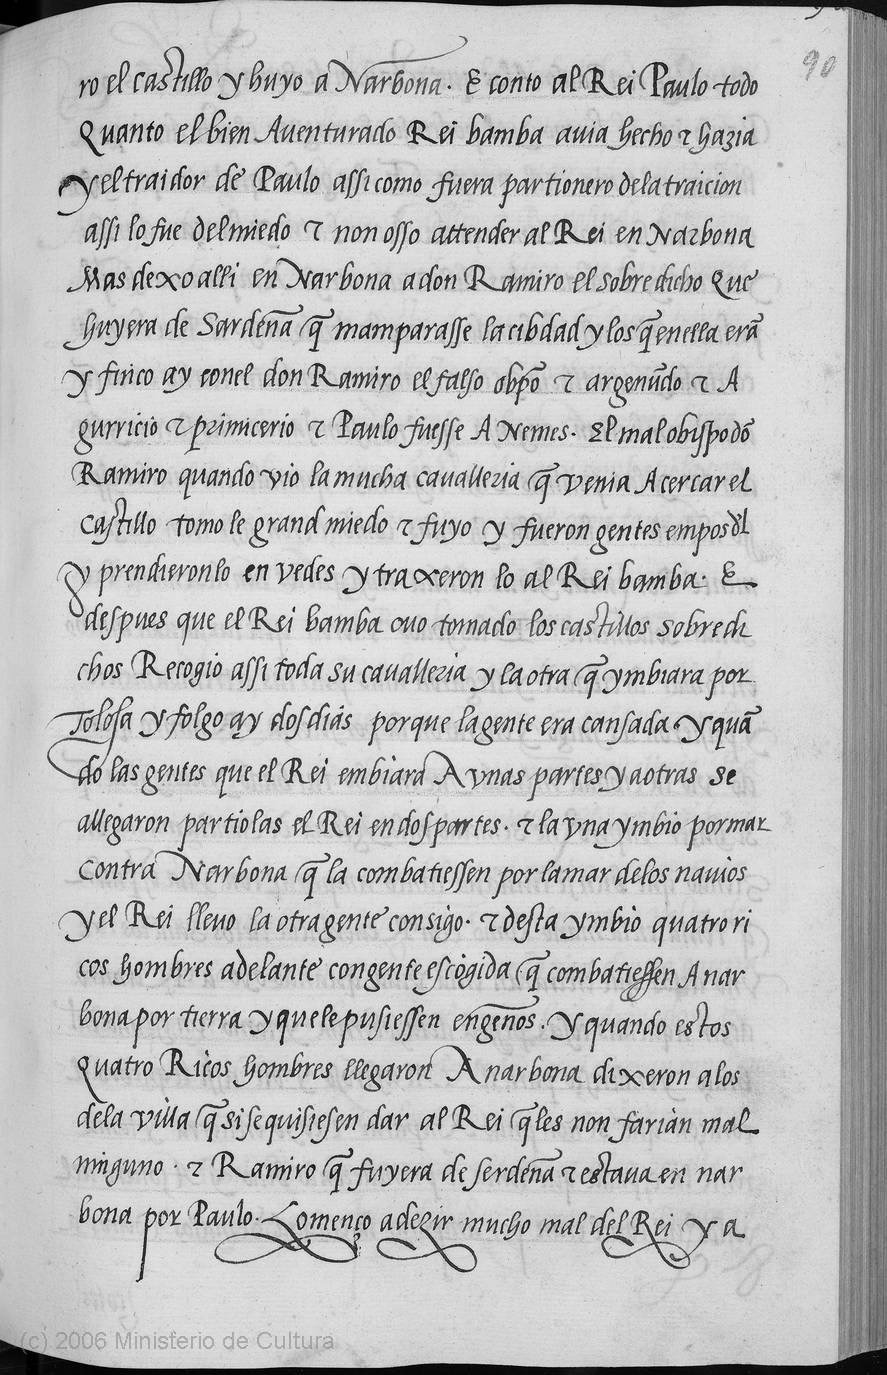 90
ro el castillo y huyo a Narbona. E conto al Rei Paulo todo
Quanto el bien Auenturado Rei bamba auia hecho τ hazia
y el traidor de Paulo assi como fuera partionero dela traicion
assi lo fue del miedo τ non osso attender al Rei en Narbona
Mas dexo alli en Narbona a don Ramiro el sobre dicho Que
huyera de Sardeña q̃ mamparasse la cibdad y los q̃ enella erã
y finco ay conel don Ramiro el falso obpõ τ argenũdo τ A
gurricio τ primicerio τ Paulo fuesse A Nemes. El mal obispo dõ
Ramiro quando vio la mucha caualleria q̃ venia A cercar el
Castillo tomo le grand miedo τ fuyo y fueron gentes empos dl
y prendieronlo en vedes y traxeron lo al Rei bamba. E
despues que el Rei bamba ouo tomado los castillos sobre di
chos Recogio assi toda su caualleria y la otra q̃ ymbiara por
Tolosa y folgo ay dos dias porque la gente era cansada y quã
do las gentes que el Rei embiara A vnas partes y a otras se
allegaron partiolas el Rei en dos partes. τ la vna ymbio por mar
contra Narbona q̃ la combatiessen por la mar delos nauios
y el Rei lleuo la otra gente consigo. τ desta ymbio quatro ri
cos hombres adelante con gente escogida q̃ combatiessen A nar
bona por tierra y que le pusiessen engeños. y quando estos
Quatro Ricos hombres llegaron A narbona dixeron a los
dela villa q̃ si se quisiesen dar al Rei q̃ les non farian mal
ninguno. τ Ramiro q̃ fuyera de serdeña τ estaua en nar
bona por Paulo. Començo a dezir mucho mal del Rei y a
(c) 2006 Ministerio de Cultura